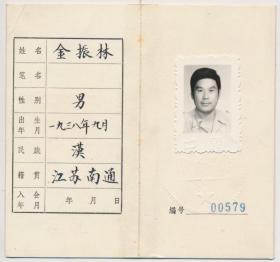 姓名 金振林
笔名
性别 男
出生年月 一九三八年九月
民族 漢
籍贯 江苏南通
入会年月 年 月 日
編号 00579